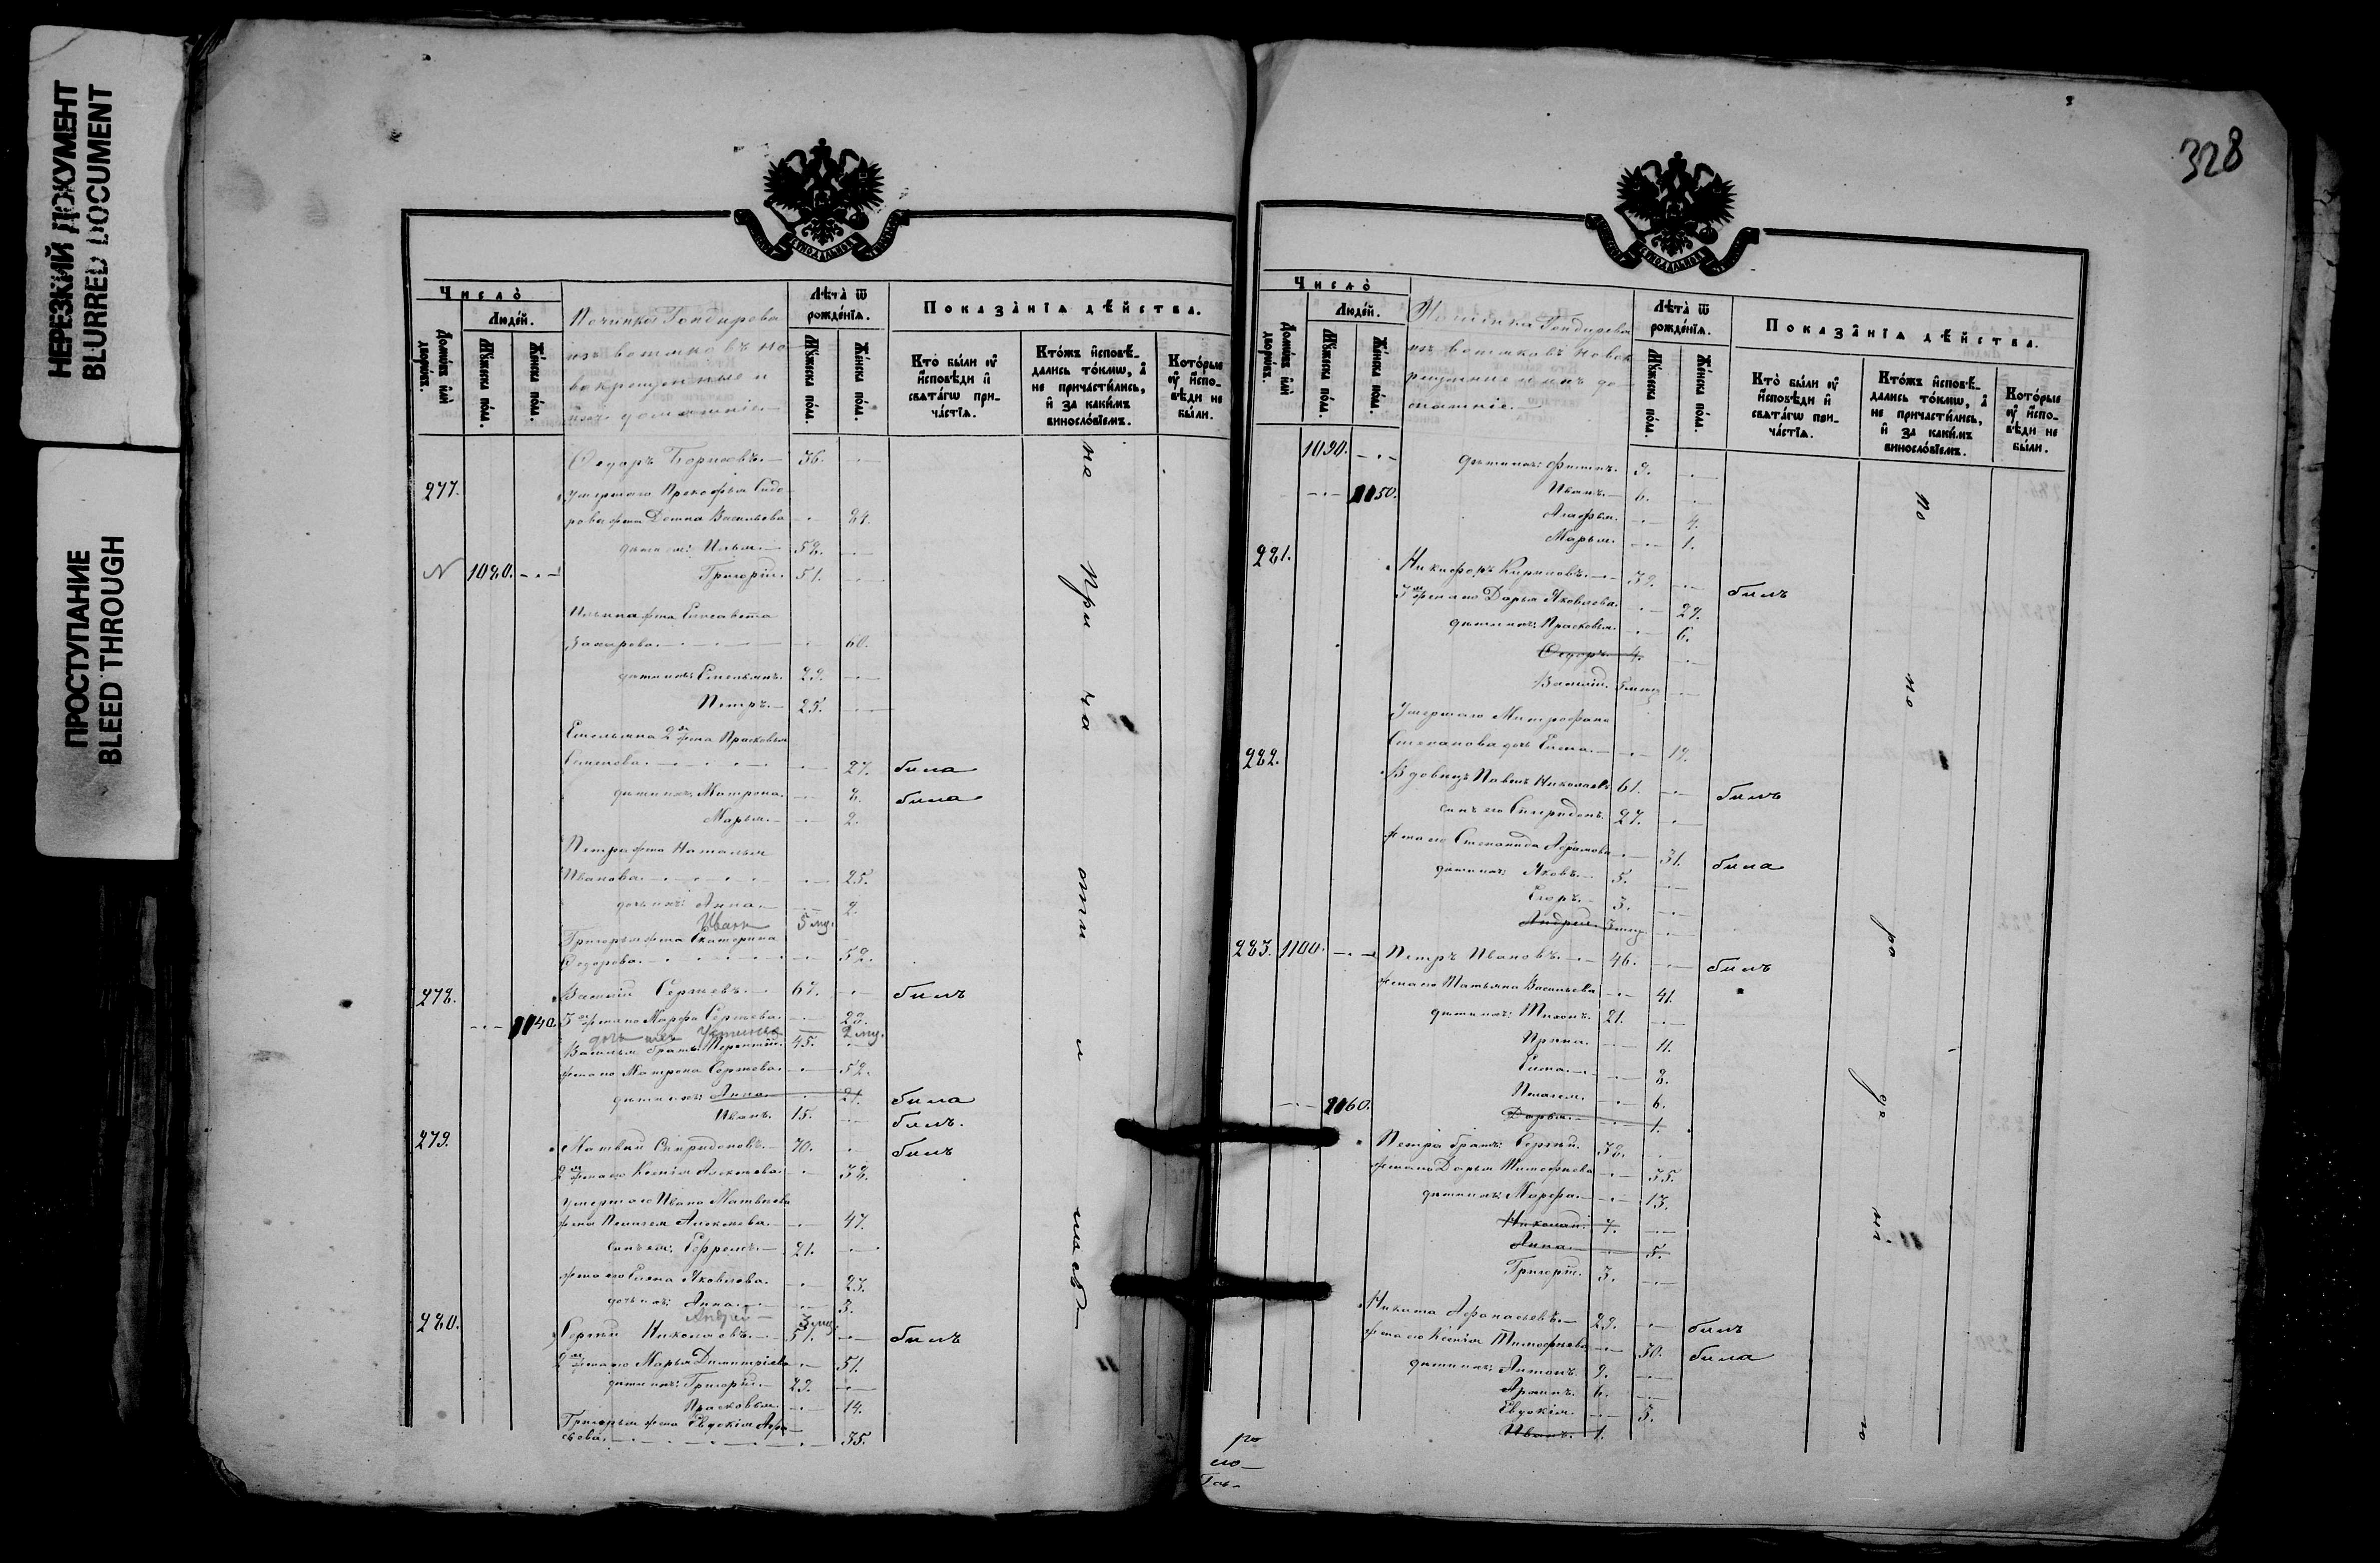 НЕРЕЗКИЙ ДОКУМЕНТ
BLURRED DOCUMENT
ПРОСТУПАНИЕ
BLEED THROUGH
Число̀
Людéй.
Домѡ́въ и҆лѝ дворѡ́въ.
Мꙋ́жеска пóла.
Жéнска пóла.
Починка Гондырева
изъ вотяковъ но-
вокрещенные и
ихъ домашніе.
Лѣта̀ ѿ рождéнїѧ.
Мꙋ́жеска пóла.
Жéнска пóла.
Показа̑нїѧ дѣ́йства.
Ктò бы́ли ᲂу҆ и҆спо́вѣди и҆ свѧта́гѡ при-ча́стїѧ.
Кто́жъ и҆сповѣ́-дались то́кмѡ, а҆ не причасти́лись, и҆ за каки́мъ винослóвїемъ.
Кото́рые ᲂу҆ и҆спо-вѣди не бы́ли.
Ѳедоръ Борисовъ. 36.
277. умершаго Прокофья Сидо-
рова жена Домна Васильева 81.
дѣти их: Илья. 52.
1080. Григорій. 51.
Ильина жена Елисавета
Захарова. 60.
дѣти ихъ: Емельянъ. 29.
Петръ. 25.
Емельяна 2я жена Прасковья
27. была
дѣти ихъ: Матрона. 8. была
Марья. 2.
Петра жена Наталья
Иванова. 25.
дочь ихъ: Анна. 2.
Иванъ 5 мц.
Григорья жена Екатерина
Ѳедорова. 52.
278. Василій Сергѣевъ. 67. былъ
1140. 3я жена его Марфа Сергѣева. 28.
дочь их Устинья 2 мц.
Василья братъ: Терентій. 45.
жена его Матрона Сергѣева. 52.
дѣти ихъ: Анна. 21. была
Иванъ. 15. былъ.
279. Матвей Спиридоновъ. 70. былъ
2я жена его Ксенія Алексѣева. 38.
умершаго Ивана Матвѣева
жена Пелагея Алексѣева. 47.
сынъ ея: Ефремъ. 21.
жена его Елена Яковлева. 23.
дочь ихъ: Анна. 3.
Андрей 3 мц.
280. Сергѣй Николаевъ. 51. былъ
2я жена его Марья Димитріева 51.
дѣти ихъ: Григорій. 29.
Прасковья. 14.
Григорья жена Евдокія Афа-
35.
не при ча сти и лись
328
Число̀
Людéй.
Домѡ́въ и҆лѝ дворѡ́въ.
Мꙋ́жеска пóла.
Жéнска пóла.
Починка Гондырева
изъ вотяковъ новок-
рещенные и ихъ до-
машніе.
Лѣта̀ ѿ рождéнїѧ.
Мꙋ́жеска пóла.
Жéнска пóла.
Показа̑нїѧ дѣ́йства.
Ктò бы́ли ᲂу҆ и҆спо́вѣди и҆ свѧта́гѡ при-ча́стїѧ.
Кто́жъ и҆сповѣ́-дались то́кмѡ, а҆ не причасти́лись, и҆ за каки́мъ винослóвїемъ.
Кото́рые ᲂу҆ и҆спо-вѣди не бы́ли.
1090. дѣти ихъ: Филипъ. 9.
1150. Иванъ. 6.
Агафья. 4.
Марья. 1.
281. Никифоръ Кириловъ. 39. былъ
3я жена его Дарья Яковлева. 29.
дѣти ихъ: Прасковья. 6.
Ѳедоръ. 4.
Василій.
Умершаго Митрофана
Степанова дочь Елена. 19.
282. Вдовецъ Павелъ Николаевъ 61. былъ
сынъ его Спиридонъ. 27.
жена его Степанида Абрамова 31. была
дѣти ихъ: Яковъ. 5.
Егоръ. 3.
Андрей.
283. 1100. Петръ Ивановъ. 46. былъ
жена его Татьяна Васильева 41.
дѣти ихъ: Тихонъ. 21.
Ирина. 11.
Елена. 8.
Пелагея. 6.
1160. Дарья. 1.
Петра братъ: Сергѣй. 38.
жена его Дарья Тимофѣева 35.
дѣти ихъ: Марфа. 13.
Николай. 7.
Анна. 5.
Григорій. 3.
Никита Афанасьевъ. 29. былъ
жена его Ксенія Тимофѣева 30. была
дѣти ихъ: Антонъ. 9.
6.
Евдокія. 3.
Иванъ. 1.